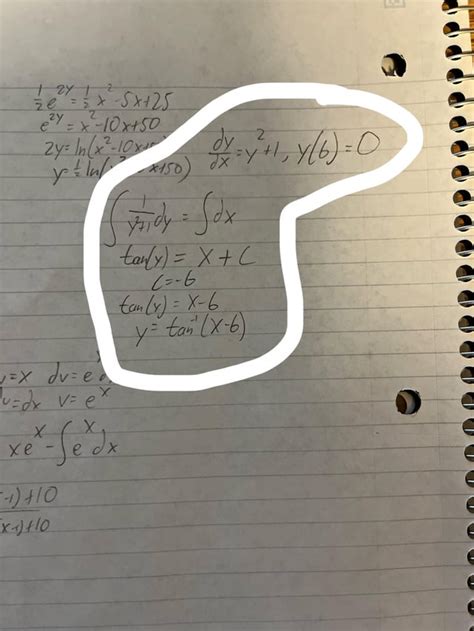 ½e^2y = ½x²-5x+25
e^2y = x²-10x+50
2y = ln(x²-10x+
y = ½ln( x+50)
dy/dx = y²+1, y(6) = 0
∫ 1/(y²+1) dy = ∫dx
tan(y) = x+C
C=-6
tan(y) = x-6
y = tan⁻¹(x-6)
=x dv=e
=dx v=e^x
xe^x - ∫e^x dx
-1)+10
x-1)+10